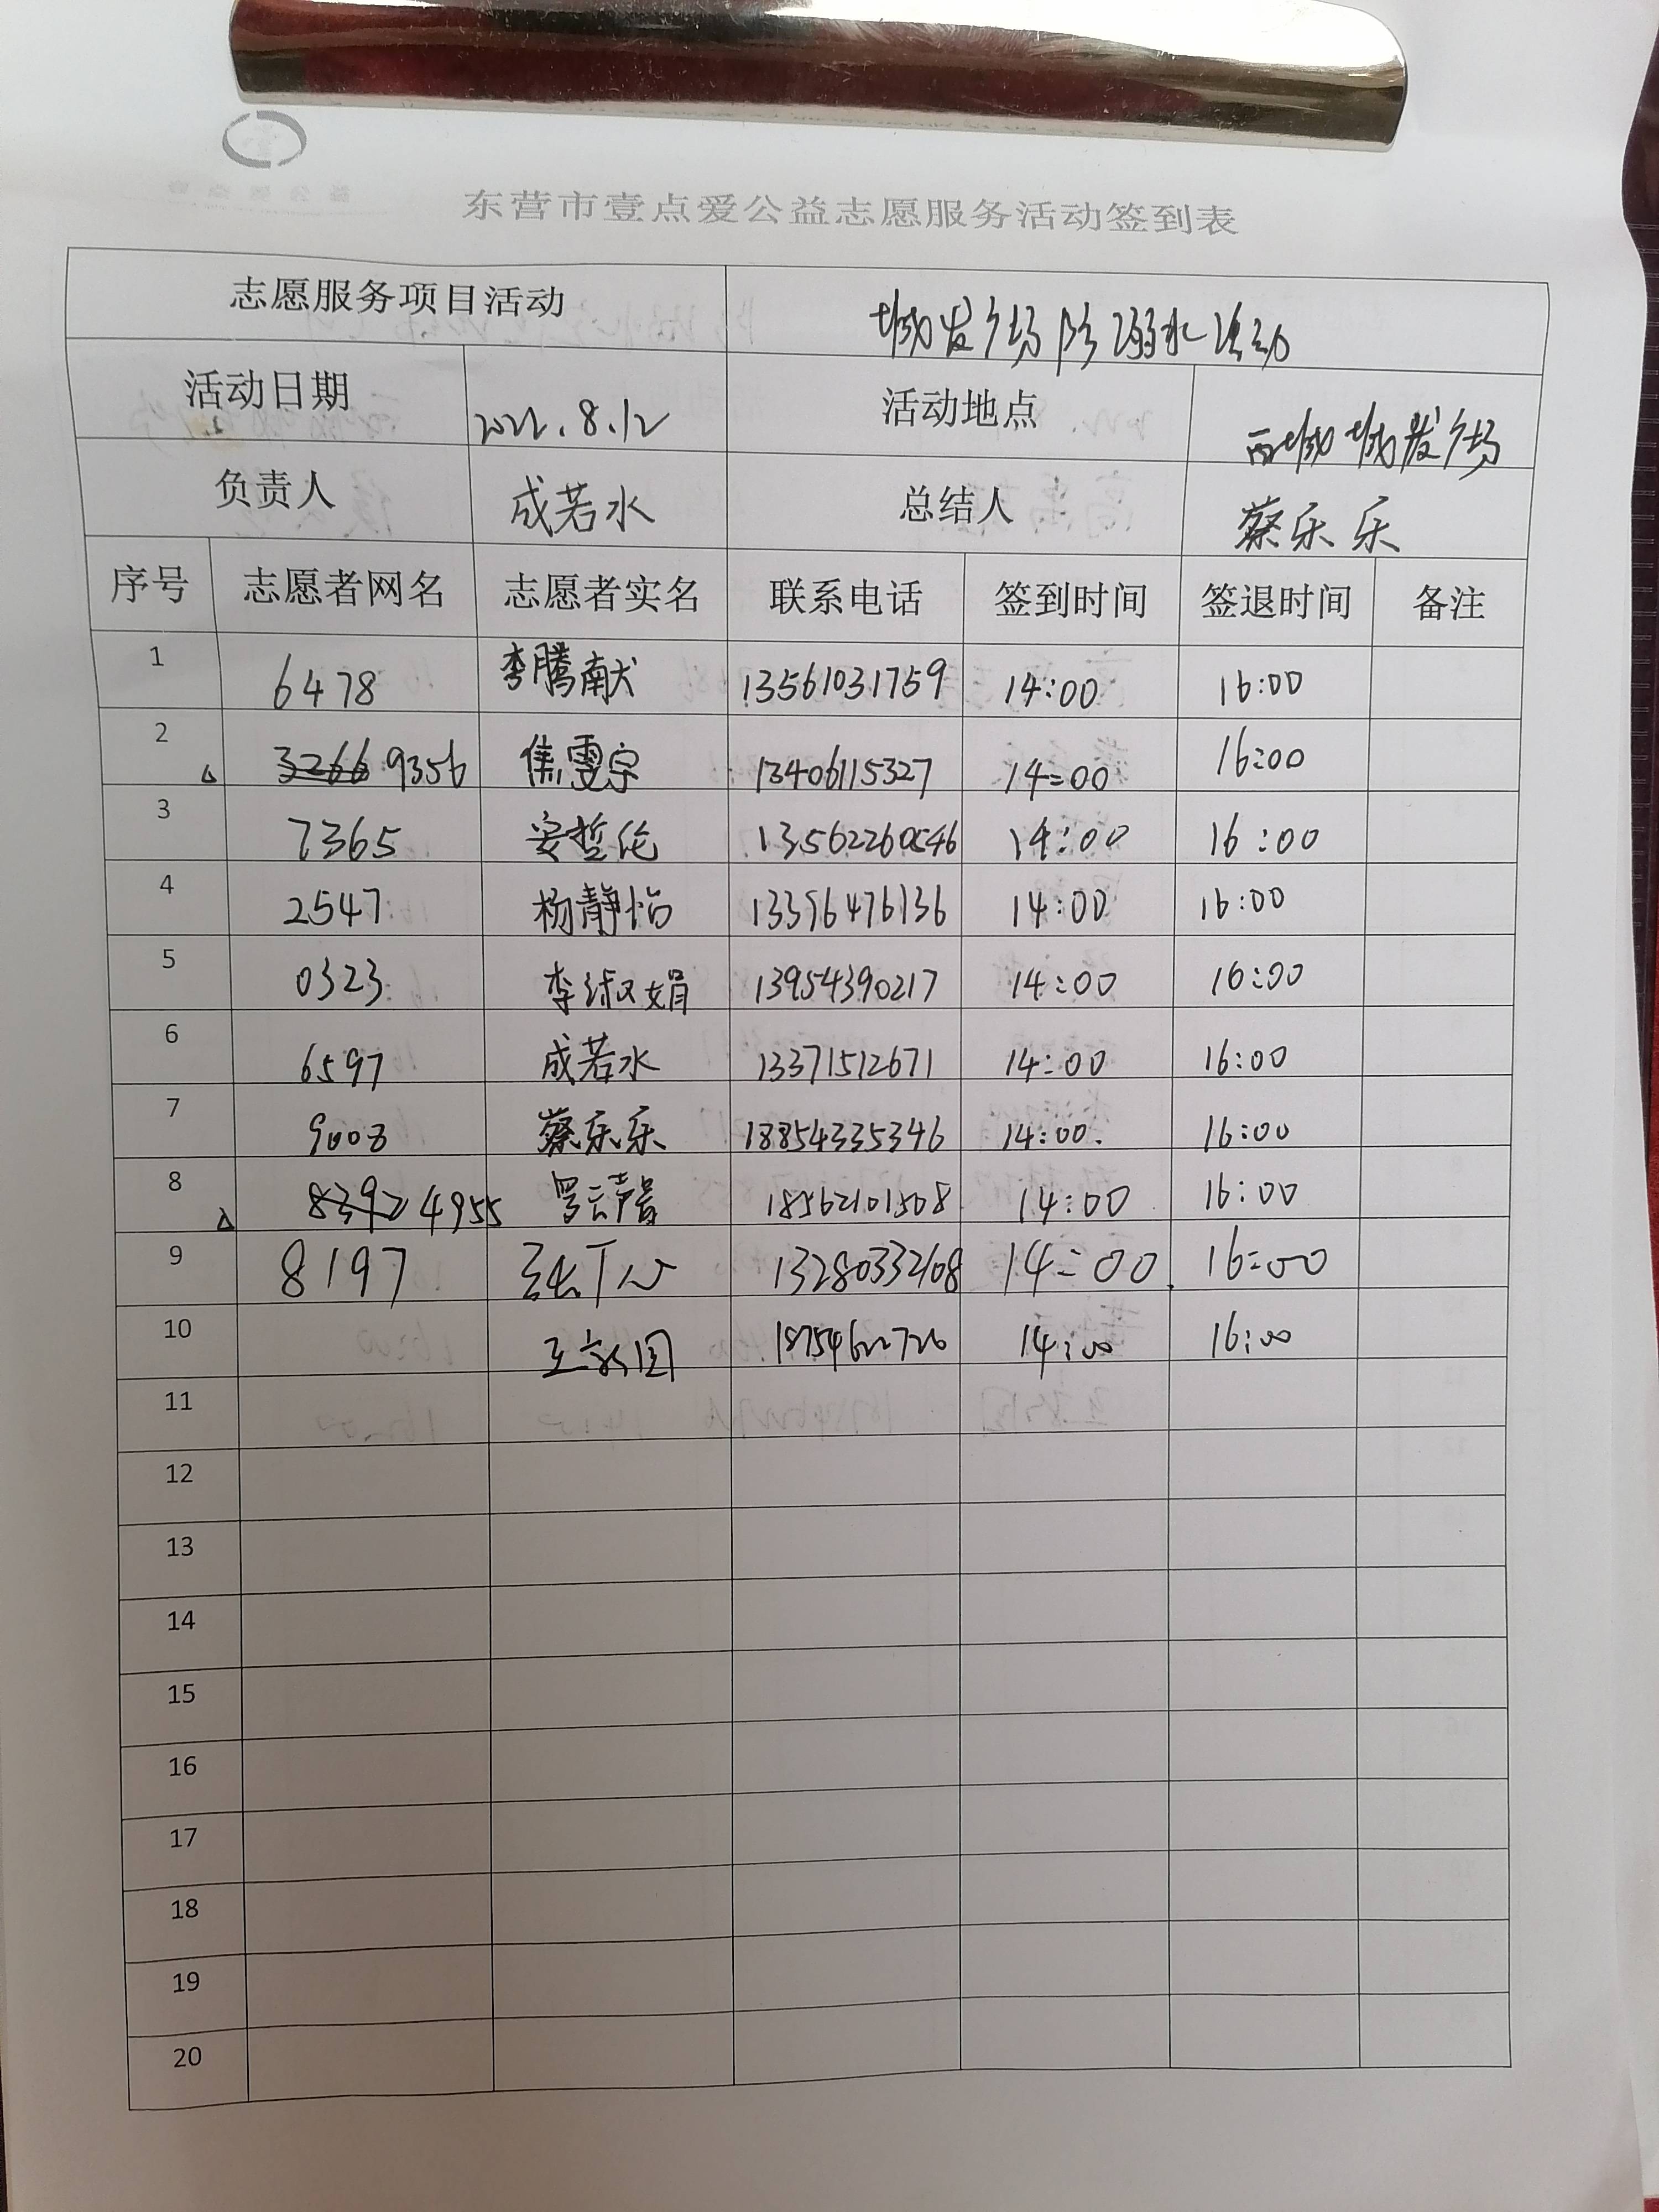 东营市壹点爱公益志愿服务活动签到表
志愿服务项目活动 城发广场防溺水活动
活动日期 2022.8.12 活动地点 西城城发广场
负责人 成若水 总结人 蔡乐乐
序号 志愿者网名 志愿者实名 联系电话 签到时间 签退时间 备注
1 6478 李腾献 13561031759 14:00 16:00
2 3266 9356 焦雯宗 13406115327 14:00 16:00
3 7365 安哲伦 13562260546 14:00 16:00
4 2547 杨静怡 13396476136 14:00 16:00
5 0323 李淑娟 13954390217 14:00 16:00
6 6597 成若水 13371512671 14:00 16:00
7 9008 蔡乐乐 18854335346 14:00 16:00
8 8392 4955 18562101508 14:00 16:00
9 8197 13280332108 14:00 16:00
10 18754622726 14:00 16:00
11
12
13
14
15
16
17
18
19
20